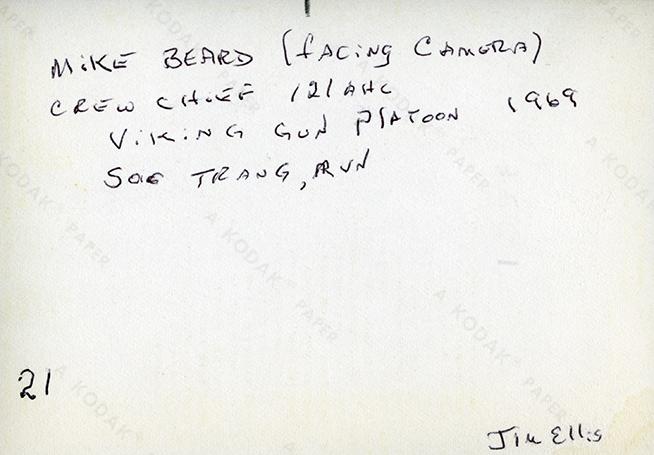 MIKE BEARD (facing CAMERA)
CREW CHIEF 121 AHC
VIKING GUN PLATOON 1969
SOC TRANG, RVN
21
Jim Ellis
A KODAK PAPER
A KODAK PAPER
A KODAK PAPER
A KODAK PAPER
A KODAK PAPER